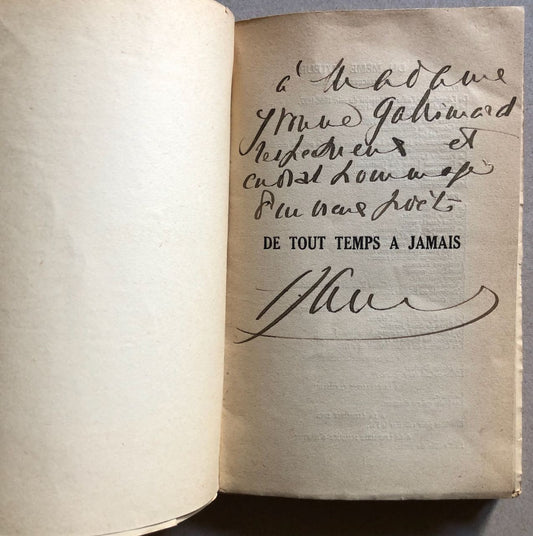 à Madame
Yvonne Gallimard
respectueux et
cordial hommage
d'un vieux poète
DE TOUT TEMPS A JAMAIS